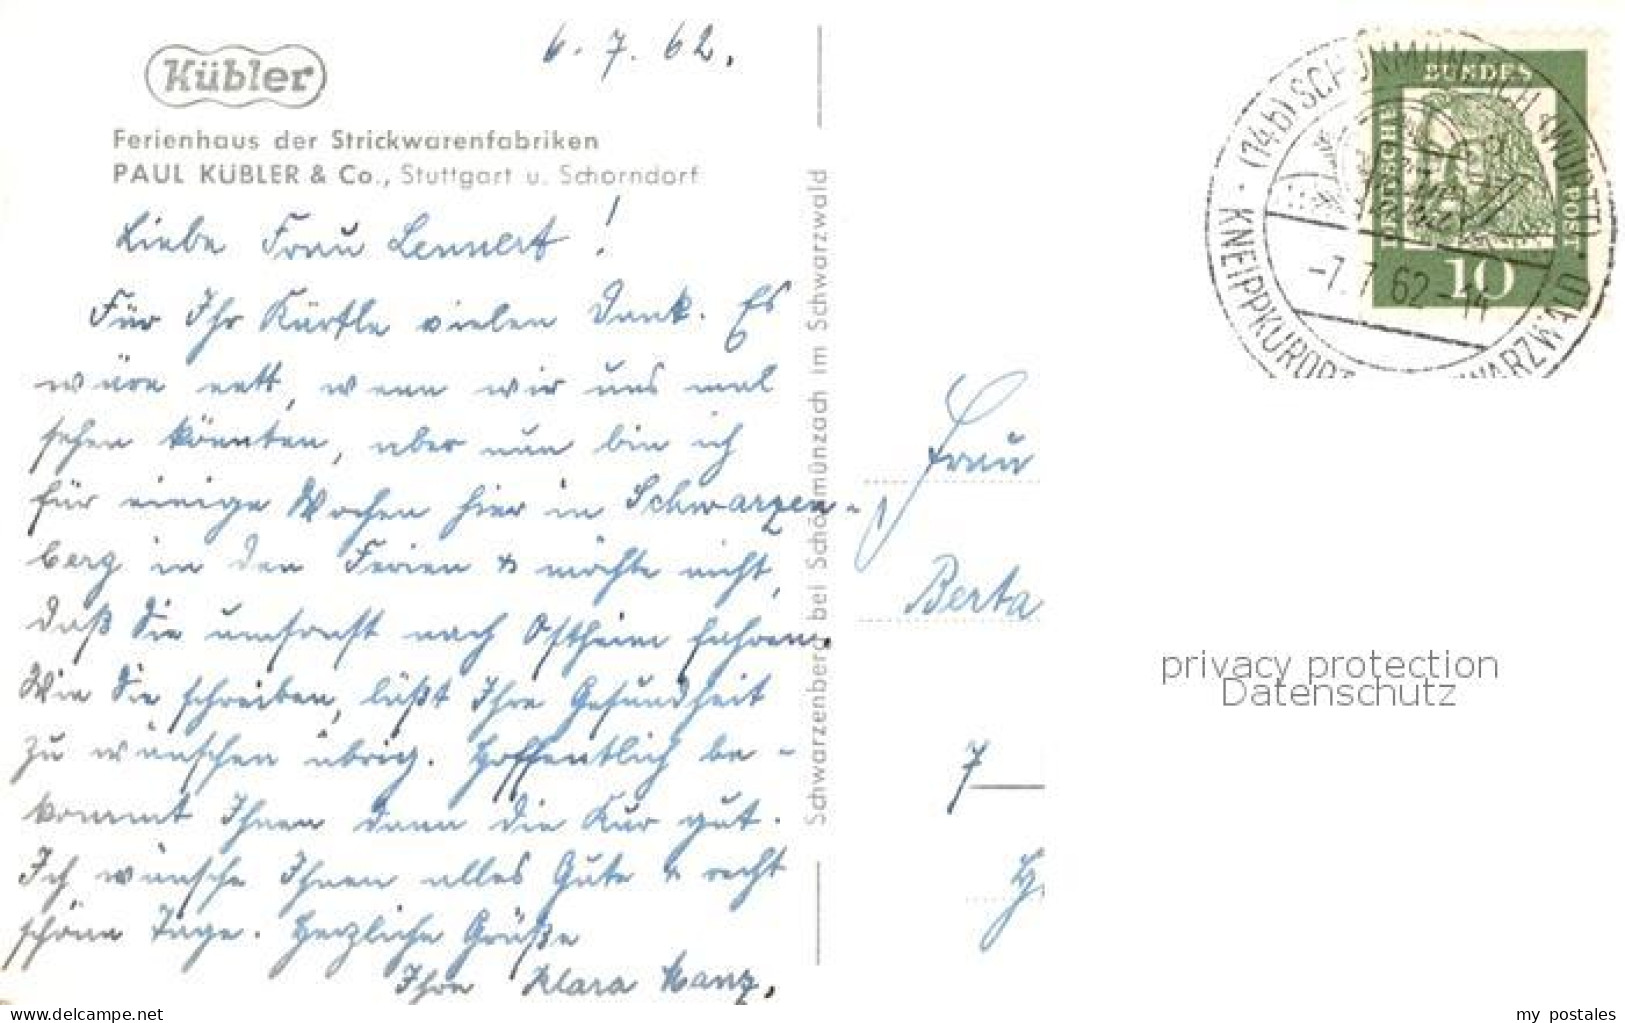 6. 7. 62.
Kübler
Ferienhaus der Strickwarenfabriken
PAUL KÜBLER & Co., Stuttgart u. Schorndorf
Liebe Frau Lennert!
Für Ihr Kärtle vielen Dank. Es
wäre nett, wenn wir uns mal
sehen könnten, aber nun bin ich
für einige Wochen hier in Schwarzen-
berg in den Ferien & möchte nicht,
daß Sie umsonst nach Ostheim fahren.
Wie Sie schreiben, läßt Ihre Gesundheit
zu wünschen übrig. Hoffentlich be-
kommt Ihnen dann die Kur gut.
Ich wünsche Ihnen alles Gute & recht
schöne Tage. Herzliche Grüße
Ihre Klara Manz.
Schwarzenberg bei Schönmünzach im Schwarzwald
Frau
Berta
7
(14b) SCHÖNMÜNZACH (WÜRTT)
KNEIPPKURORT SCHWARZWALD
-7.7.62-14
DEUTSCHE
BUNDES
POST
10
privacy protection
Datenschutz
www.delcampe.net
my_postales